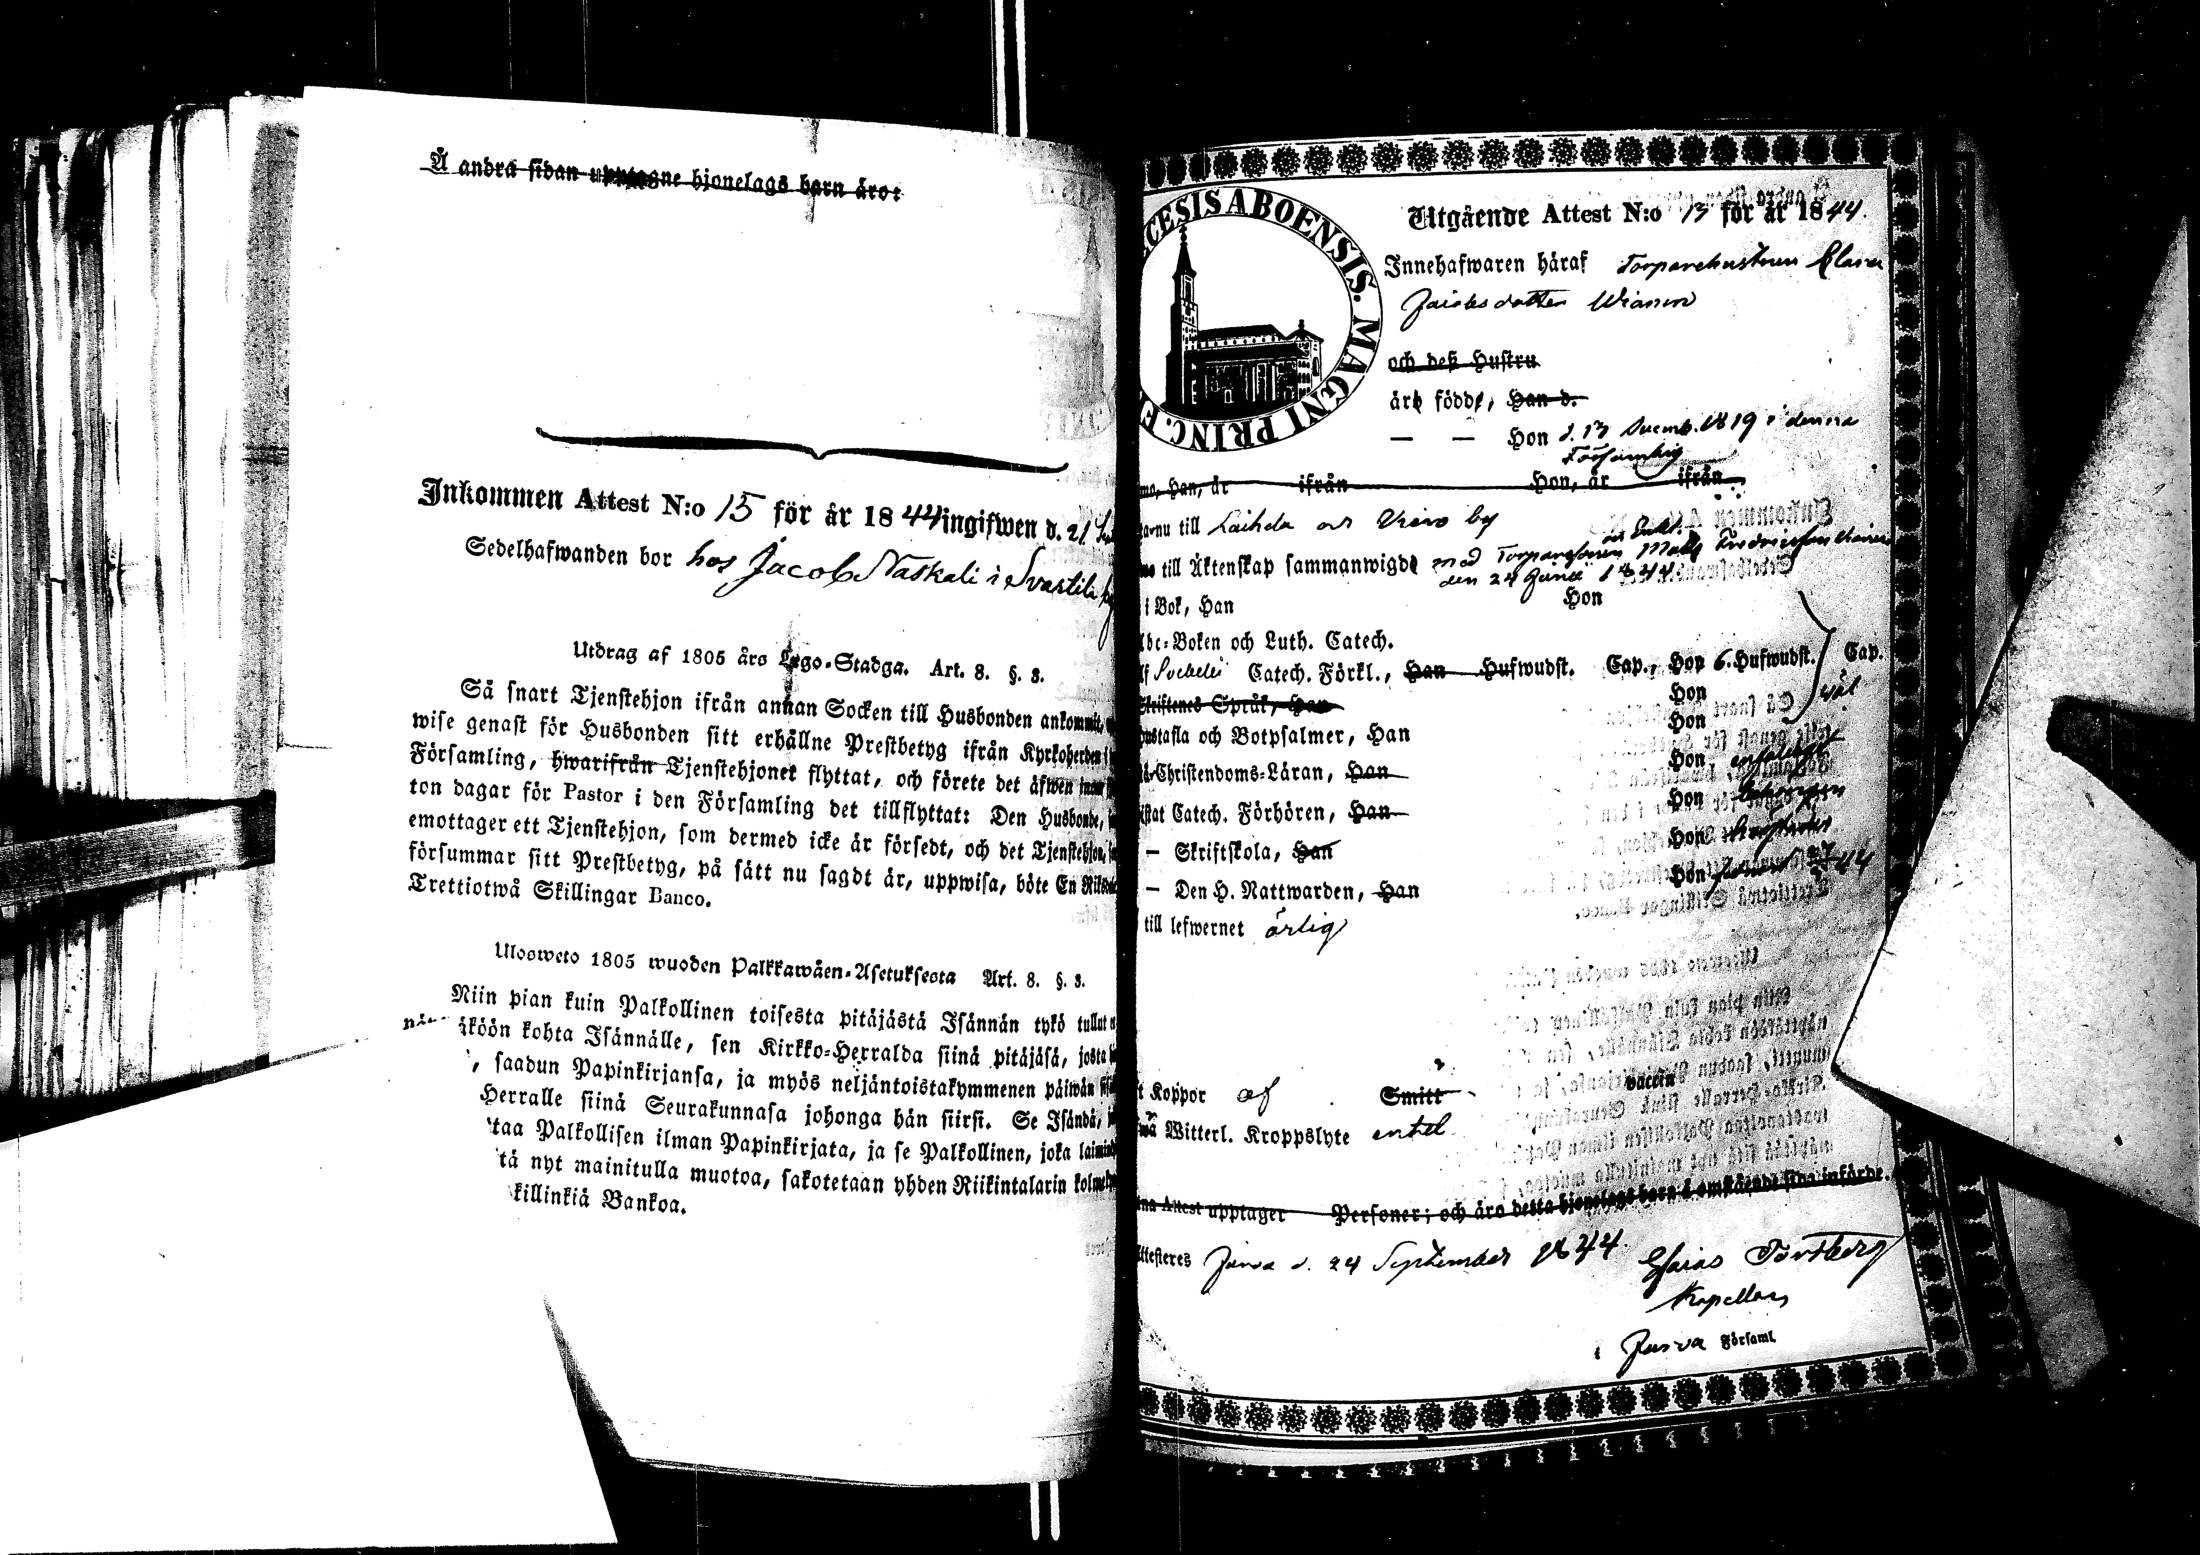 Å andra sidan upptagne hjonelags barn äro:
Inkommen Attest N:o 15 för år 1844 ingifwen d. 21
Sedelhafwanden bor hos Jacob Naskali i Svartila
Utdrag af 1805 års Lego-Stadga. Art. 8. §. 3.
Så snart Tjenstehjon ifrån annan Socken till Husbonden ankommit,
wise genast för Husbonden sitt erhållne Prestbetyg ifrån Kyrkoherden i
Församling, hwarifrån Tjenstehjonet flyttat, och förete det äfwen inom
ton dagar för Pastor i den Församling det tillflyttat: Den Husbonde,
emottager ett Tjenstehjon, som dermed icke är försedt, och det Tjenstehjon,
försummar sitt Prestbetyg, på sätt nu sagdt är, uppwisa, böte En
Trettiotwå Skillingar Banco.
Ulosweto 1805 wuoden Palkkawäen-Asetuksesta Art. 8. §. 3.
Niin pian kuin Palkollinen toisesta pitäjästä Isännän tykö tullut
äköön kohta Isännälle, sen Kirkko-Herralda siinä pitäjäsä, josta
, saadun Papinkirjansa, ja myös neljäntoistakymmenen päiwän
Herralle siinä Seurakunnasa johonga hän siirsi. Se Isändä,
taa Palkollisen ilman Papinkirjata, ja se Palkollinen, joka
tä nyt mainitulla muotoa, sakotetaan yhden Riikintalarin
killinkiä Bankoa.
CESIS ABOENSIS. MAGNI PRINC.
Utgående Attest N:o 13 för år 1844.
Innehafwaren häraf Torparehustrun Clara
Jacobsdotter
och deß Hustru
äro födde, Han d.
— — Hon d. 13 Decemb. 1819 i denna
Församling
Han, år ifrån Hon, år ifrån
nu till Laihela och by
till Äktenskap sammanwigde med Torparesonen Matts Fredricsson
den 24 Junii 1844
i Bok, Han Hon
Abc-Boken och Luth. Catech.
Svebelii Catech. Förkl., Han Hufwudst. Cap., Hon 6. Hufwudst. Cap.
Skriftenes Språk, Han Hon väl
Hustafla och Botpsalmer, Han Hon
Christendoms-Läran, Han Hon
Catech. Förhören, Han Hon
— Skriftskola, Han Hon
— Den H. Nattwarden, Han Hon
till lefwernet ärlig
Koppor af Smitt vaccin
Witterl. Kroppslyte enkel
Attest upptager Personer; och äro detta hjonelags barn å omstående sida införde.
Attesteres Jurva d. 24 September 1844.
Esaias
Kapellan
i Jurva Församl.